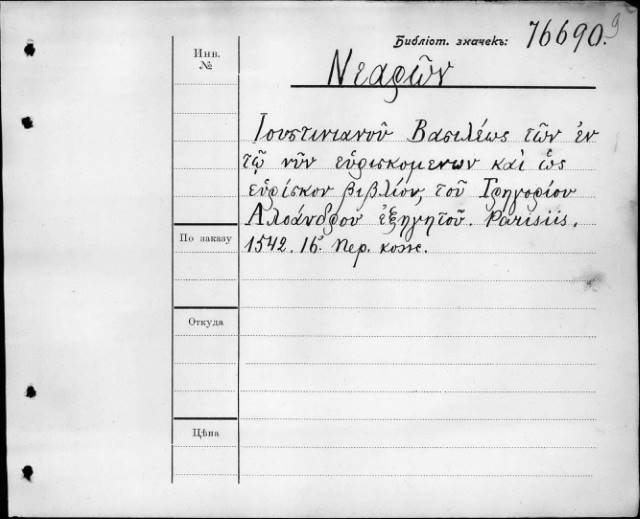 Библіот. значекъ: 76690.9
Инв.
№
Νεαρῶν
Ἰουστινιανοῦ Βασιλέως τῶν ἐν
τῷ νῦν εὑρισκομενων καὶ ὡς
εὑρίσκον βιβλίον, τοῦ Γρηγορίου
Ἀλοάνδρου ἐξηγητοῦ. Parisiis,
По заказу
1542. 16°. Пер. кож.
Откуда
Цѣна